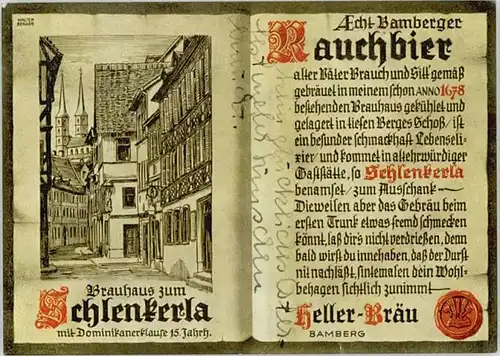 WALTER
BERGER
Brauhaus zum
Schlenkerla
mit Dominikanerklause 15. Jahrh.
Æcht Bamberger
Rauchbier
alter Väter Brauch und Sitt' gemäß
gebräuet in meinem schon ANNO 1678
bestehenden Brauhaus gekühlet und
gelagert in tiefen Berges Schoß / ist
ein besunder schmackhaft Lebenseli-
xier / und kommet in altehrwürdiger
Gaststätte, so Schlenkerla
benamset / zum Ausschank —
Dieweilen aber das Gebräu beim
ersten Trunk etwas fremd schmecken
könnt, laß dirs nicht verdrießen, denn
bald wirst du innehaben, daß der Durst
nit nachläßt, sintemalen dein Wohl-
behagen sichtlich zunimmt —
Heller-Bräu
BAMBERG